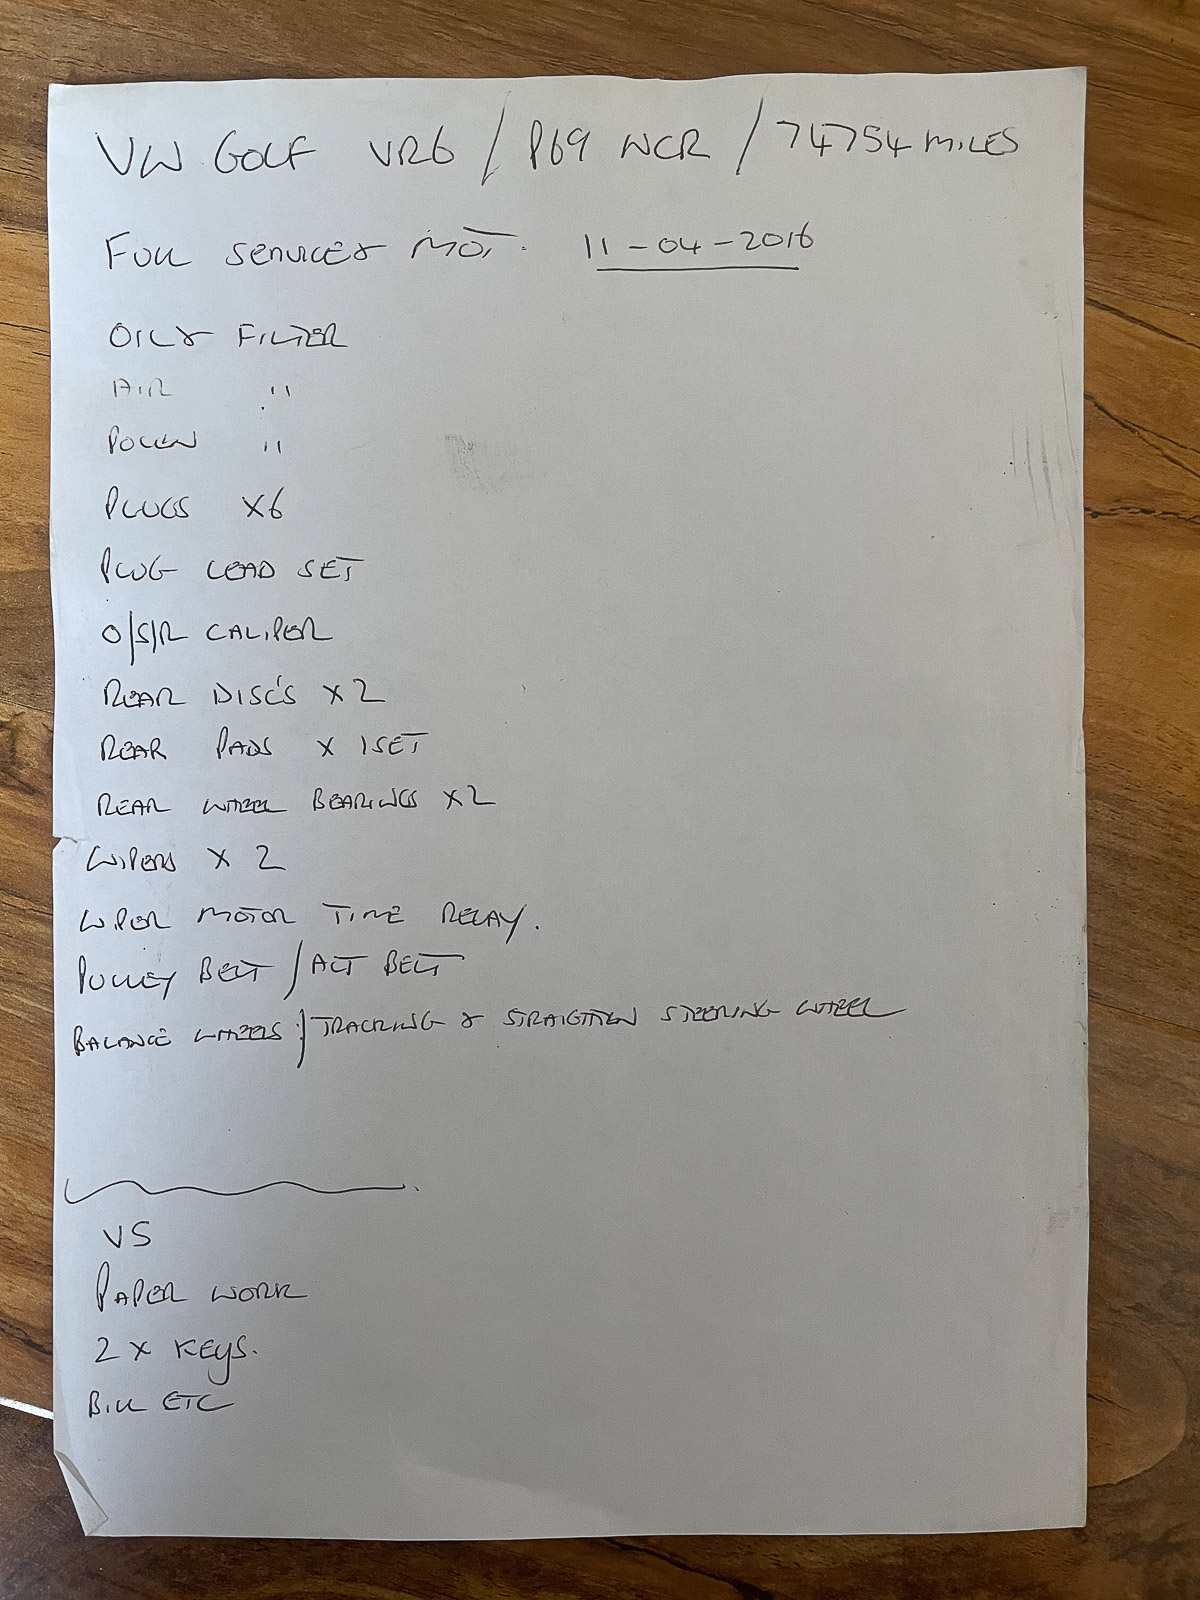 VW GOLF VR6 / P69 NCR / 74754 MILES
FULL SERVICE & MOT. 11-04-2016
OIL & FILTER
AIR "
POLLEN "
PLUGS X6
PLUG LEAD SET
O/S/R CALIPER
REAR DISC'S X2
REAR PADS X 1SET
REAR WHEEL BEARINGS X2
WIPERS X 2
WIPER MOTOR TIME RELAY.
PULLEY BELT / ALT BELT
BALANCE WHEELS / TRACKING & STRAIGHTEN STEERING WHEEL
VS
PAPER WORK
2 X KEYS.
BILL ETC